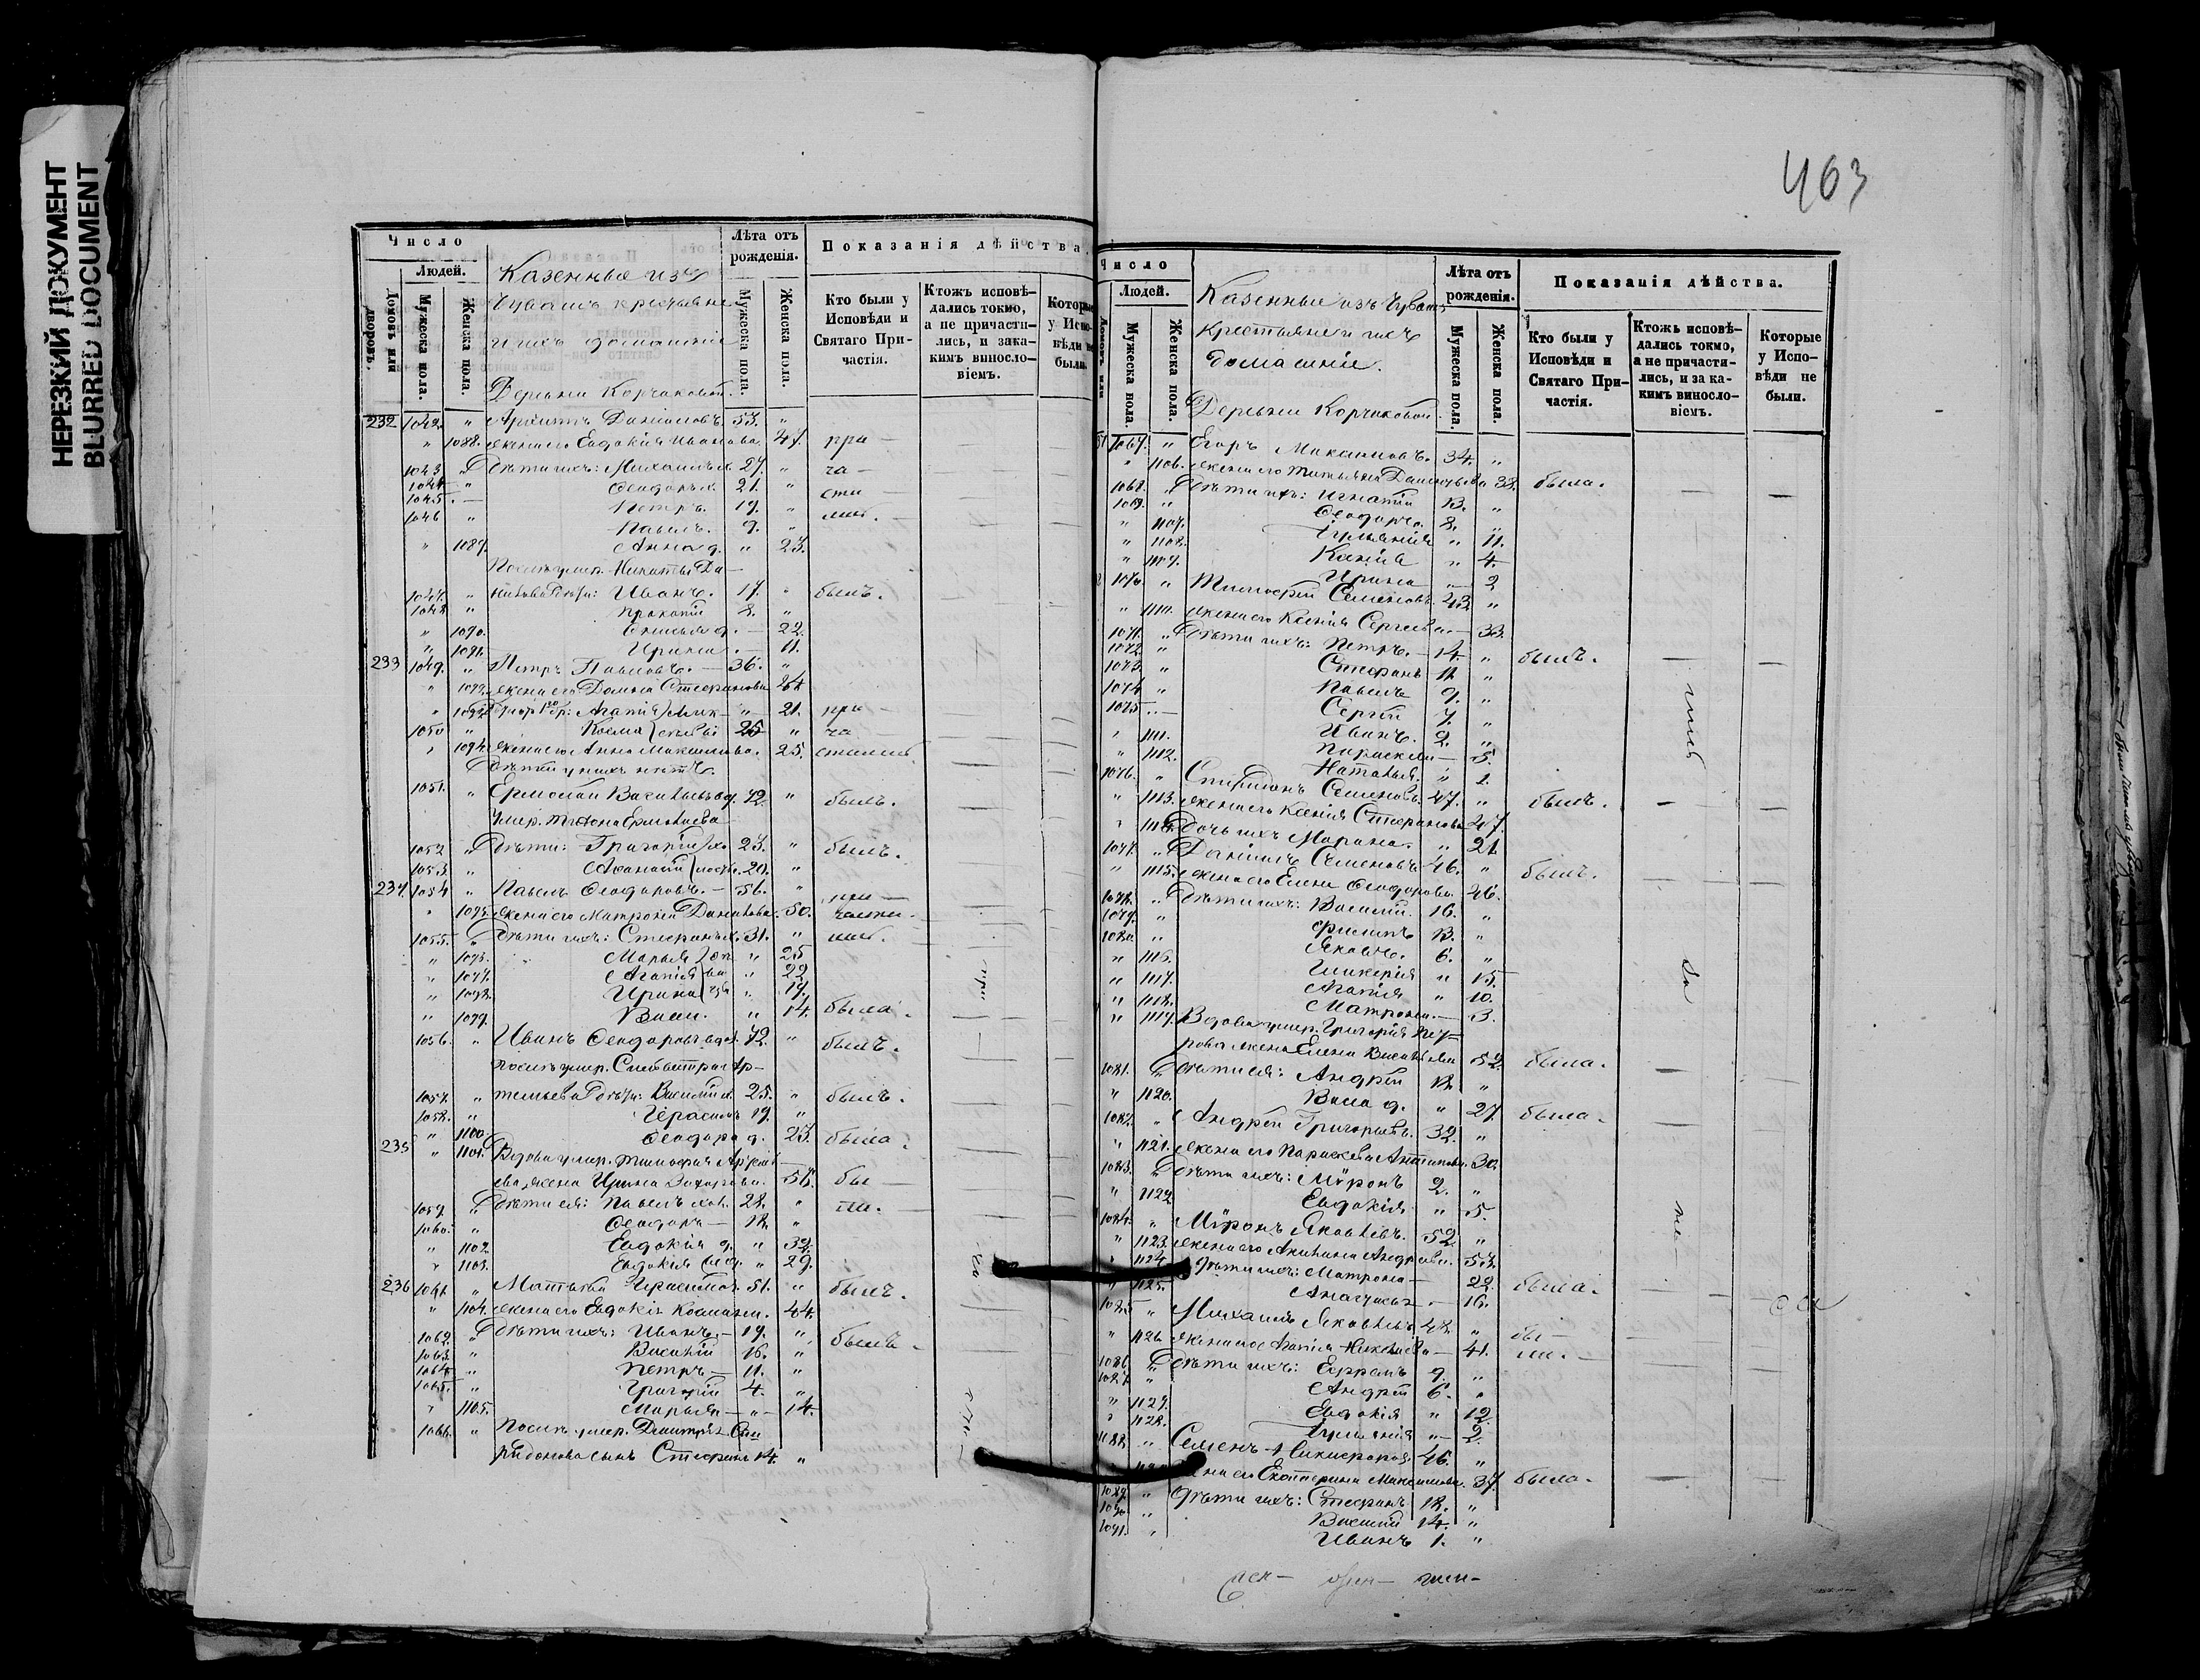 НЕРЕЗКИЙ ДОКУМЕНТ
BLURRED DOCUMENT
Число
Людей.
Домовъ или дворовъ.
Мужеска пола.
Женска пола.
Казенные изъ
Чувашъ крестьяне
и ихъ домашніи
Деревни Корчаковой.
Лѣта отъ рожденія.
Мужеска пола.
Женска пола.
Показанія дѣйства
Кто были у Исповѣди и Святаго Причастія.
Ктожъ исповѣдались токмо, а не причастились, и за какимъ винословіемъ.
Которые у Исповѣди не были.
232 1042. " Архиппъ Даниловъ. 53. "
" 1088. жена его Евдокія Иванова. 47. при-
1043 " Дѣти ихъ: Михаилъ х. 27. " ча-
1044 " Ѳеодоръ х. 21. " сти
1045. — Петръ. 19. " лись.
1046 " Павелъ. 9. "
" 1089. Анна д. " 23.
Послѣ умер. Никиты Да-
1047. " нилова дѣти: Иванъ. 17. " былъ.
1048 " Прокопій 8. "
" 1090. д. — 22.
" 1091. Ирина. — 11.
233 1049. " Петръ Павловъ. — 36. "
" 1092. жена его Домна Стефанова 24
" Агапія " 21. при-
1050 " Косма 25 " ча
" 1094. жена его Анна Максимова. 25. стились
Дѣтей у нихъ нѣтъ.
1051. " Ермолай Васильевъ вд. 72. " былъ.
умер. Ермолаева
1052. " дѣти: Григорій х. 23. " былъ.
1053. " Аѳанасій 20. "
234. 1054 " Павелъ Ѳеодоровъ. — 56. " при-
" 1095. жена его Матрона Данилова. 50. части-
1055. " Дѣти ихъ: Стефанъ х. 31. " лись.
" Марья " 25
" 1097. Агапія " 22
" 1098. Ирина " 19.
" 1099. Васса. " 14. была.
1056. " Иванъ Ѳеодоровъ вдов. 72. " былъ.
Послѣ умер. Сильвестра Ар-
1057. " темьева дѣти: Василій х. 25. " былъ.
1058. " Герасимъ 19. "
" 1100. Ѳеодора д. 23. была.
235 " 1101. Вдова умер. Тимоѳея
жена Ирина Захарова. 56. бы-
1059. " Дѣти ея: Павелъ хол. 28. " ла.
1060. " Ѳеодоръ — 18. "
" 1102. Евдокія д. " 32.
" 1103. Евдокія " 29.
236 1061. " Матвѣй Герасимовъ 51. " былъ.
" 1104. жена его Евдокія Космина. 44.
1062. " Дѣти ихъ: Иванъ. — 19. " былъ.
1063. " Василій 16. "
1064. " Петръ — 11. "
1065. " Григорій 4. "
" 1105. Марья — " — 14.
1066. " Послѣ умер. Димитрія Спи
ридонова сынъ Стефанъ 14. "
463
Число
Людей.
Мужеска пола.
Женска пола.
Казенные изъ Чувашъ
крестьяне и ихъ
домашніе.
Деревни Корчаковой.
Лѣта отъ рожденія.
Мужеска пола.
Женска пола.
Показанія дѣйства.
Кто были у Исповѣди и Святаго Причастія.
Ктожъ исповѣдались токмо, а не причастились, и за какимъ винословіемъ.
Которые у Исповѣди не были.
1067. " Егоръ Максимовъ. 34. "
" 1106. жена его Татьяна 38. была.
1068. " Дѣти ихъ: Игнатій 13. "
1069. " Ѳеодоръ. 8. "
" 1107. Іуліанія " 11.
" 1108. Ксенія " 4.
" 1109. Ирина " 2
1070. " Тимоѳей Семеновъ. 43 "
" 1110. жена его Ксенія Сергеева. — 38.
1071. " Дѣти ихъ: Петръ. — 14. " былъ.
1072 " Стефанъ 11 "
1073. " Павелъ 9. "
1074 " Сергій 7. "
1075 — Иванъ. 2. "
" 1111. Параскева — 5.
" 1112. Наталья. " 1.
1076. " Спиридонъ Семеновъ. 47. " былъ.
" 1113. жена его Ксенія Стефанова 47.
" 1114. Дочь ихъ Марина. " 21.
1077. " Даніилъ Семеновъ 46. " былъ.
" 1115. жена его Елена Ѳеодорова. 46.
1078. " Дѣти ихъ: Василій. 16. "
1079. " Филиппъ 13. "
1080. " Яковъ. 6. "
" 1116. Гликерія " 15.
" 1117. Агапія " 10.
" 1118. Матрона. — 3.
" 1119. Вдова умер. Григорія Пет-
рова жена Елена Васильева 52. была.
1081. " Дѣти ея: Андрей 18 "
" 1120. Васса д. " 27. была.
1082. " Андрей Григорьевъ. 32. "
" 1121. жена его Параскева Антипова. 30.
1083. " Дѣти ихъ: Миронъ 2. "
" 1122 Евдокія " 5.
1084. " Миронъ Яковлевъ. 52. "
" 1123. жена его Акилина Андреева. 53.
" 1124. Дѣти ихъ: Матрона — 22. была.
" 1125. — 16.
1085 " Михаилъ Яковлевъ 48. " бы-
" 1126. жена его Агапія — 41. ли.
1086. " Дѣти ихъ: Ефремъ 9. "
1087. " Андрей 6. "
" 1127. Евдокія " 12.
" 1128. Іуліанія " 2.
1088. " Семенъ Никифоровъ 46. "
жена его Екатерина Максимова. 37. была.
1089. " Дѣти ихъ: Стефанъ 18. "
1090. " Василій 14. "
1091. " Иванъ 1. "